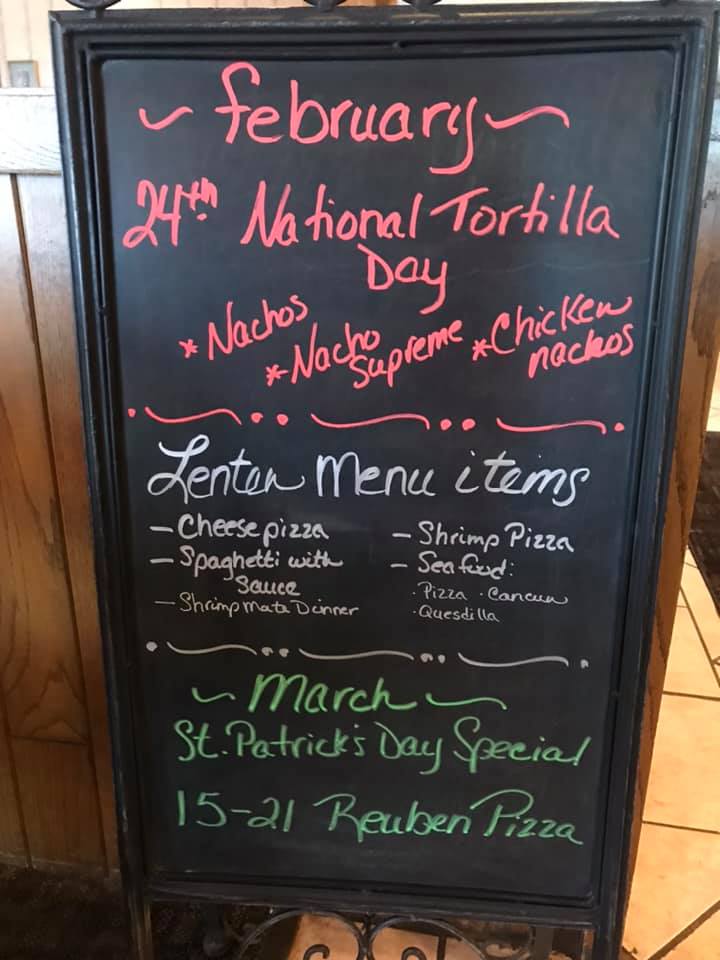 ~ February ~
24th National Tortilla
Day
*Nachos *Nacho Supreme *Chicken nachos
Lenten Menu items
- Cheese pizza
- Spaghetti with
Sauce
- Shrimp Mata Dinner
- Shrimp Pizza
- Seafood:
· Pizza · Cancun
· Quesdilla
~ March ~
St. Patrick's Day Special
15-21 Reuben Pizza